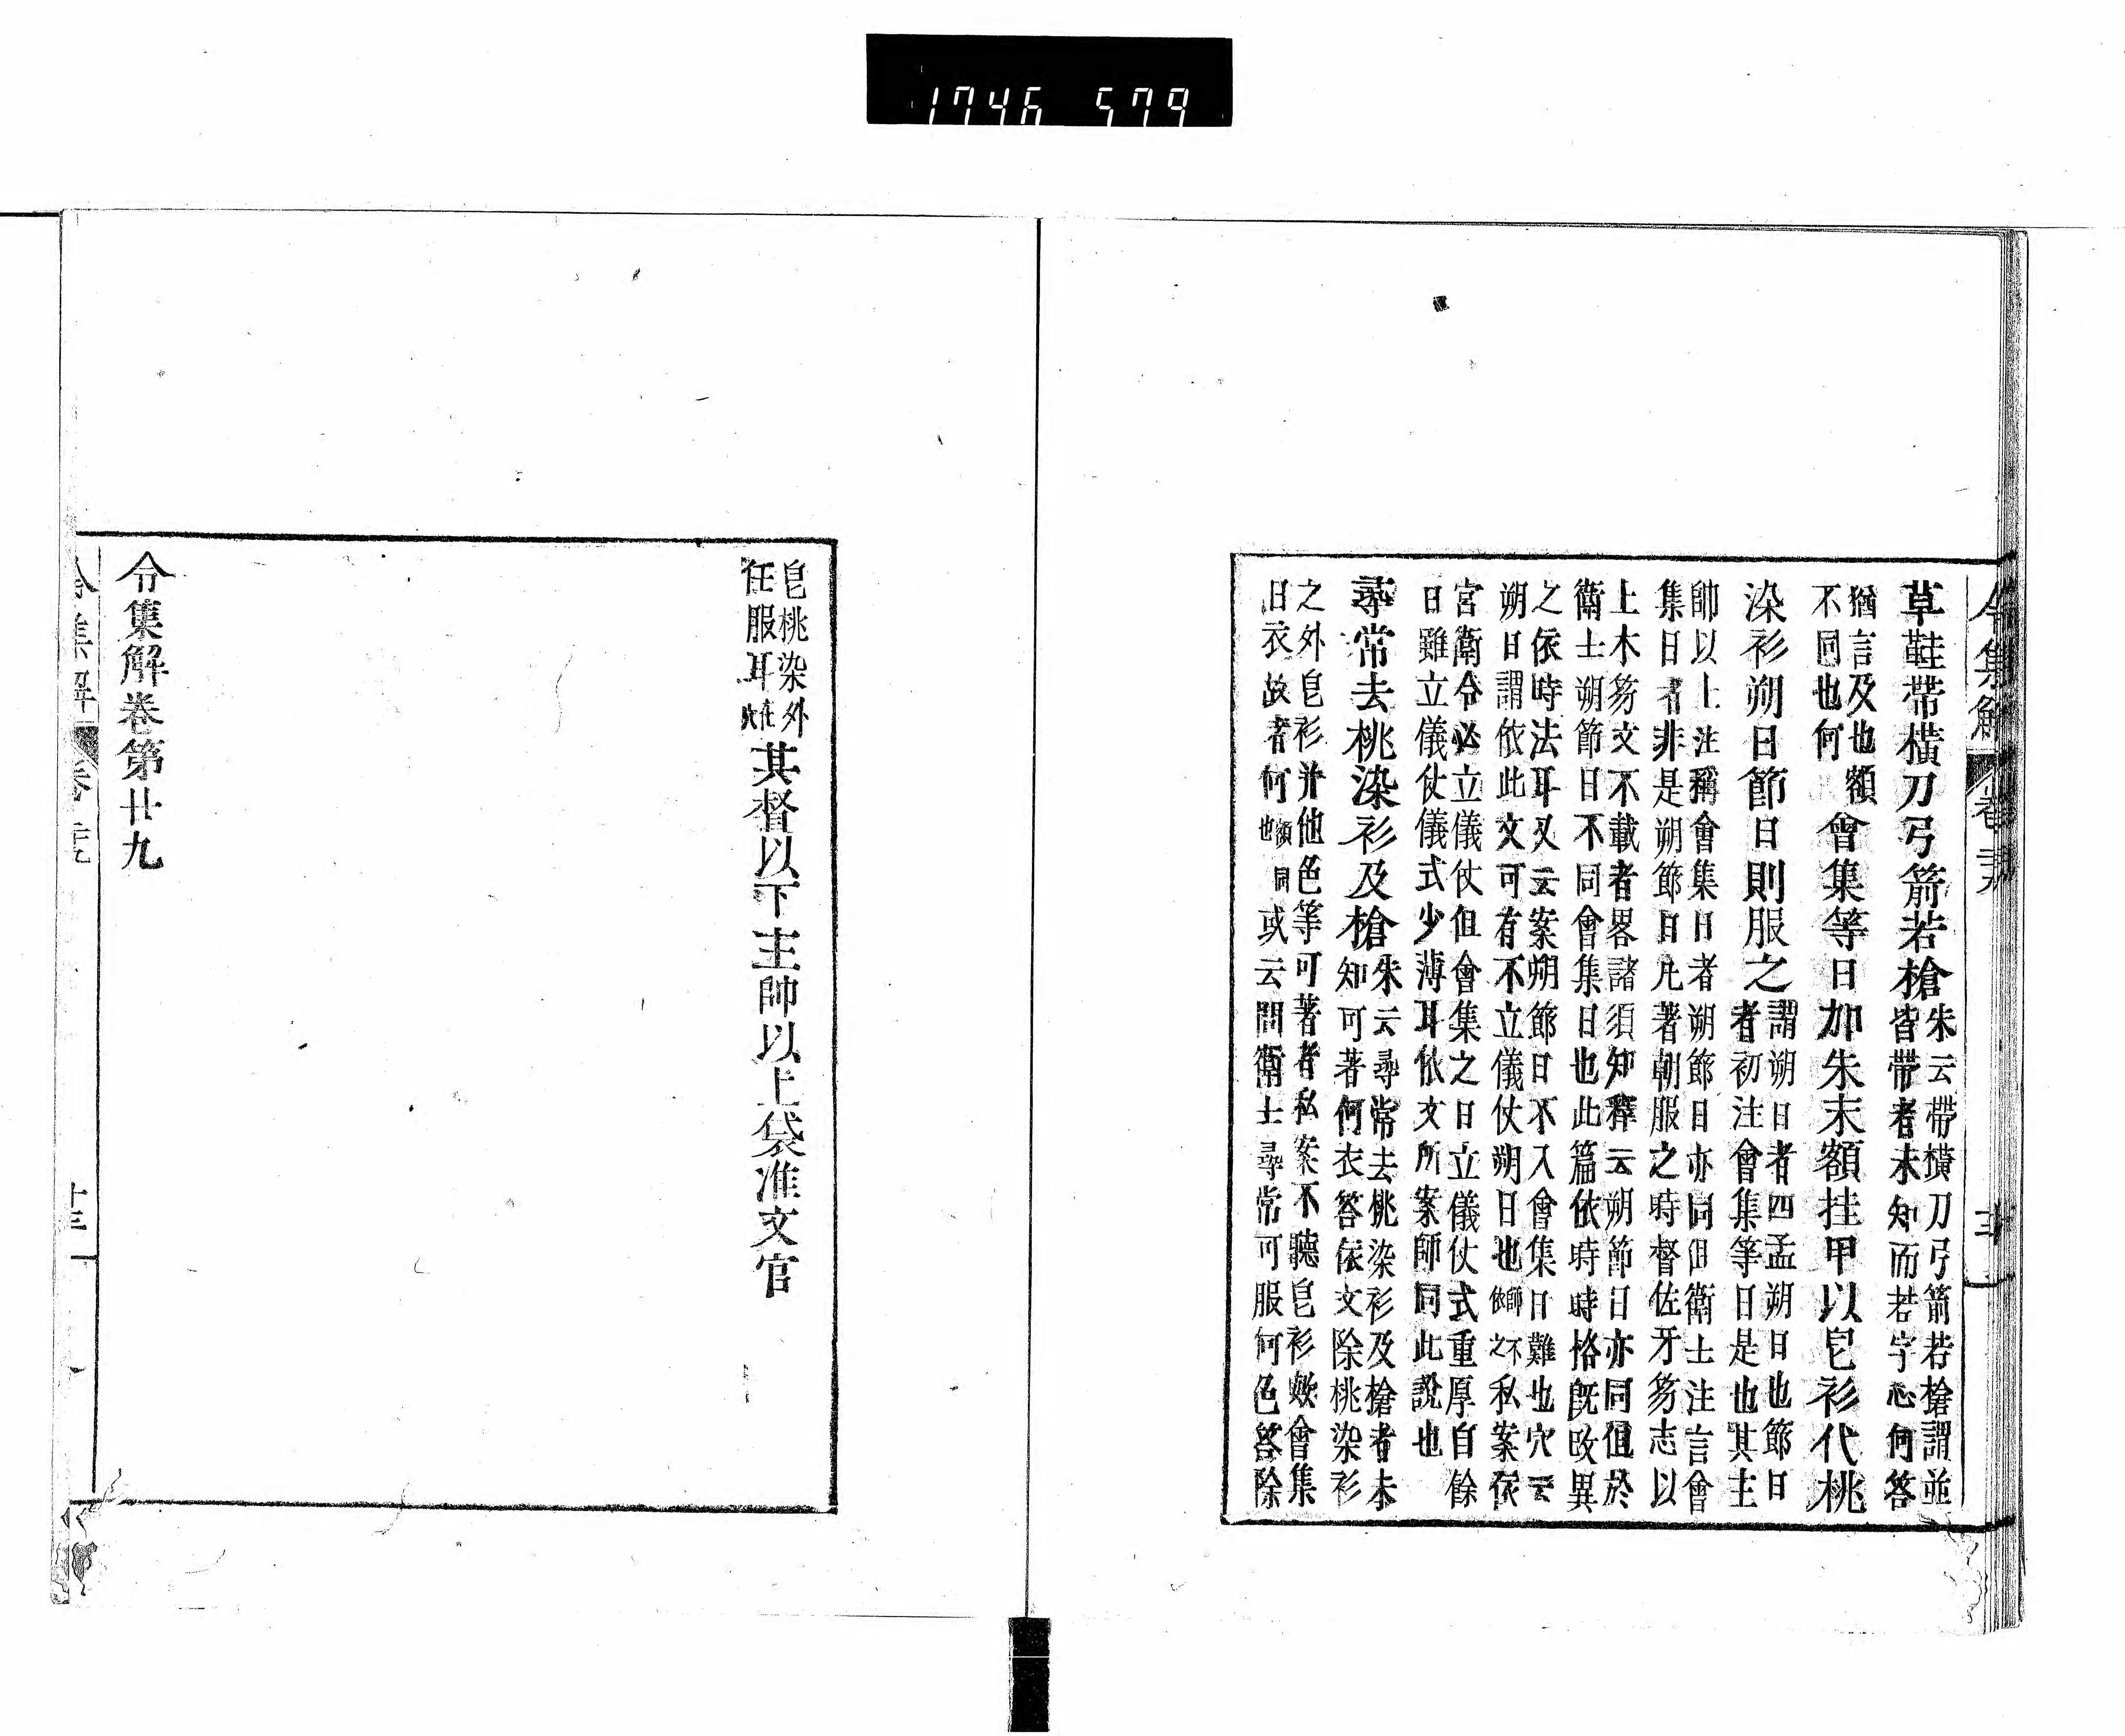 1746 579
草鞋帶橫刀弓箭若槍
朱云帶橫刀弓箭若槍謂並
皆帶者未知而若字心何答
猶言及也額
不同也何
會集等日加朱末額挂甲以皂衫代桃
染衫朔日節日則服之
謂朔日者四孟朔日也節日
者初注會集等日是也其主
帥以上注稱會集日者朔節日亦同但衛士注言會
集日者非是朔節日凡著朝服之時督佐牙笏志以
上木笏文不載者畧諸須知釋云朔節日亦同但於
衛士朔節日不同會集日也此篇依時時格旣改異
之依時法耳又云案朔節日不入會集日難也穴云
朔日謂依此文可有不立儀仗朔日也師不依之私案依
宮衛令必立儀仗但會集之日立儀仗式重厚自餘
日雖立儀仗儀式少薄耳依文所案師同此說也
尋常去桃染衫及槍
朱云尋常去桃染衫及槍者未
知可著何衣答依文除桃染衫
之外皂衫并他色等可著者私案不聽皂衫歟會集
日衣故者何額同也或云問衛士尋常可服何色答除
皂桃染外
任服耳在穴
其督以下主帥以上袋准文官
令集解卷第廿九